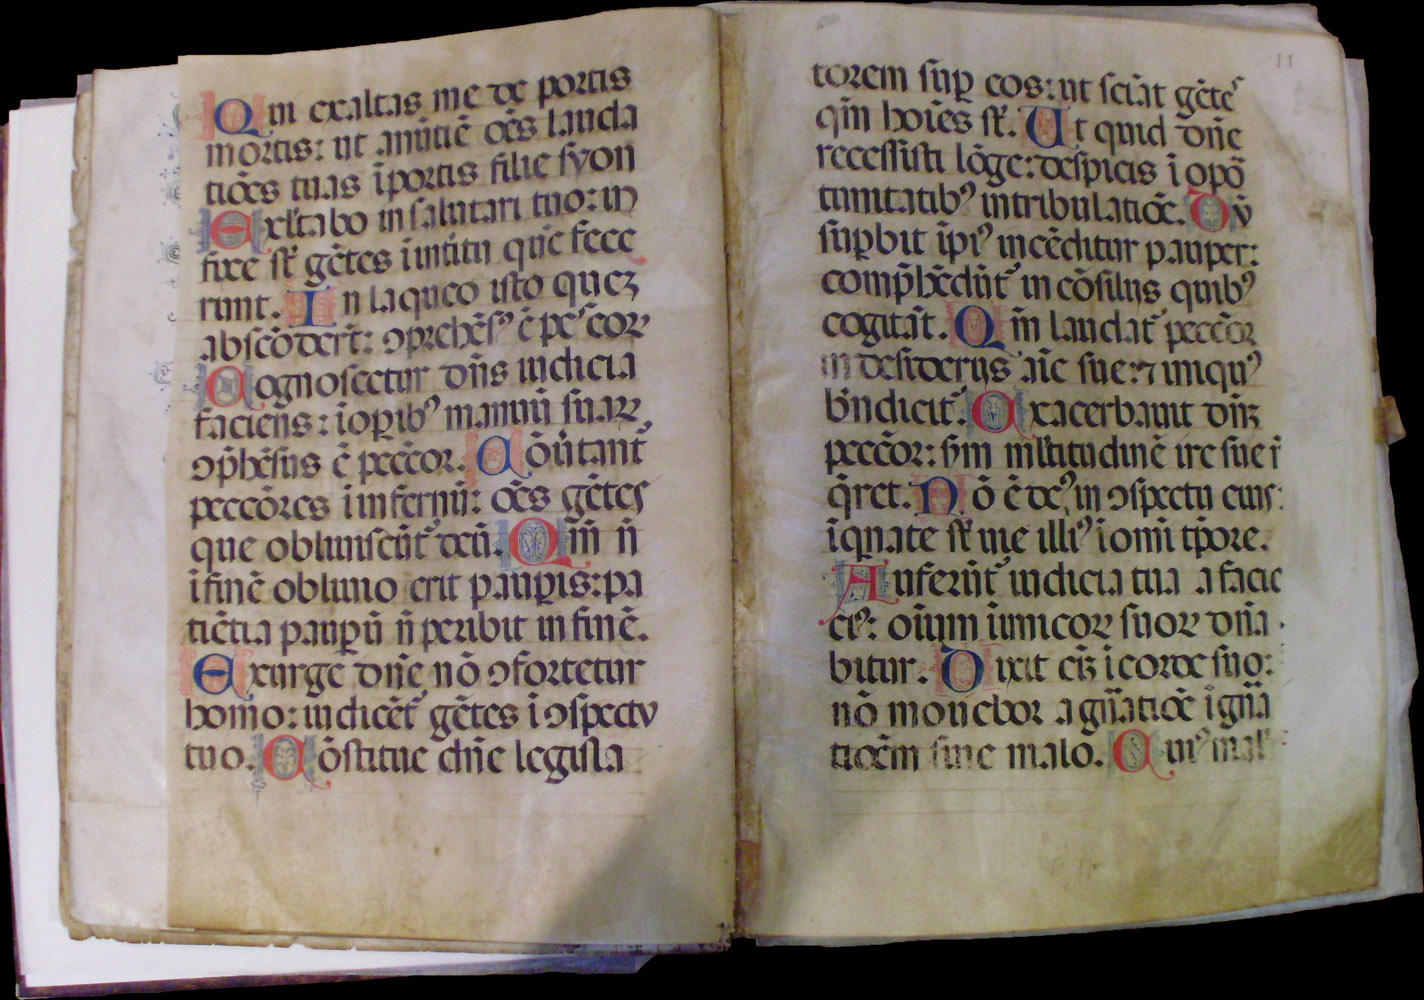 Qui exaltas me de portis
mortis: ut anūtiē oēs lauda
tiōes tuas ī portis filie syon
Exl̄tabo in salutari tuo: in
fixe st̄ gētes ī intītu quē fece
runt. In laqueo isto quez
abscōdert̄: ꝯprehēsꝰ ē pes eoꝝ
Cognoscetur dn̄s iudicia
faciens: ī oꝑibꝰ manuū suaꝝ
ꝯp̄hēsus ē peccōr. Cōūtant᷑
peccōres ī infernū: oēs gētes
que obliuiscūt᷑ deū. Qm̄ n̄
ī finē obliuio erit pauꝑis: pa
tiētia pauꝑū n̄ peribit in finē.
Exurge dn̄e nō ꝯfortetur
homo: iudicēt᷑ gētes ī ꝯspectu
tuo. Cōstitue dn̄e legisla
11
torem suꝑ eos: ut sciāt gētes
qm̄ hoīes st̄. Ut quid dn̄e
recessisti lōge: despicis ī opō
tunitatibꝰ in tribulatiōe. Dū
suꝑbit īpiꝰ incēditur pauper:
comp̄hēdūt᷑ in cōsiliis quibꝰ
cogitāt. Qm̄ laudat᷑ peccōr
in desiderijs aīe sue: ⁊ iniquꝰ
bn̄dicit᷑. Exacerbauit dn̄z
peccōr: s̄m ml̄titudinē ire sue n̄
q̄ret. Nō ē deꝰ in ꝯspectu eius:
īqͥnate st̄ uie illiꝰ ī omī tp̄ore.
Auferūt᷑ iudicia tua a facie
eiꝰ: oīum inīmicoꝝ suoꝝ dn̄a
bitur. Dixit ēīz ī corde suo:
nō mouebor a gn̄atiōe ī gn̄a
tioēm sine malo. Cuiꝰ mal